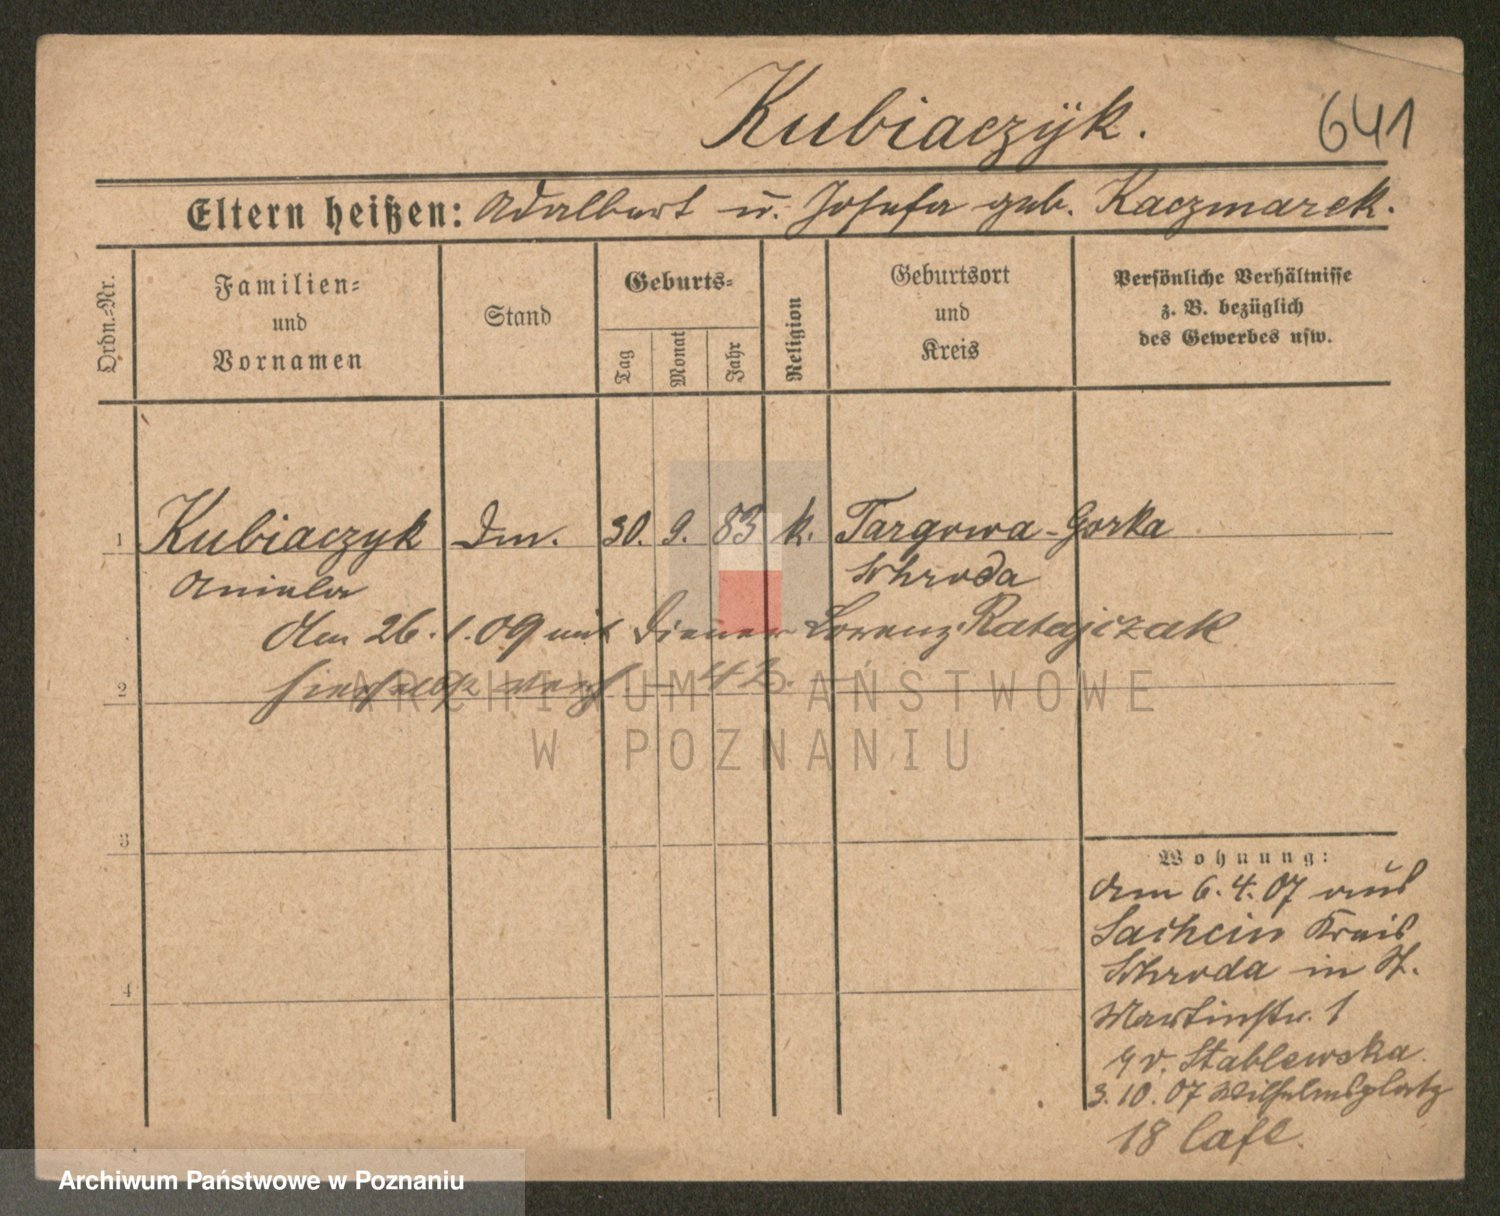 Kubiaczÿk.
641
Eltern heißen: Adalbert u. Josefa geb. Kaczmarek.
Ordn.-Nr.
Familien-
und
Vornamen
Stand
Geburts-
Tag
Monat
Jahr
Religion
Geburtsort
und
Kreis
Persönliche Verhältnisse
z. B. bezüglich
des Gewerbes usw.
1 Kubiaczyk Dm. 30. 9. 83 k. Targowa-Gorka
Aniela Schroda
Am 26.1.09 mit Diener Lorenz Ratajczak
2 hierselbst verh.
3
4
Wohnung:
Am 6.4.07 aus
Kreis
Schroda in St.
Martinstr. 1
v. Stablewska
3.10.07 Wilhelmsplatz
18 Café.
ARCHIWUM PAŃSTWOWE
W POZNANIU
Archiwum Państwowe w Poznaniu